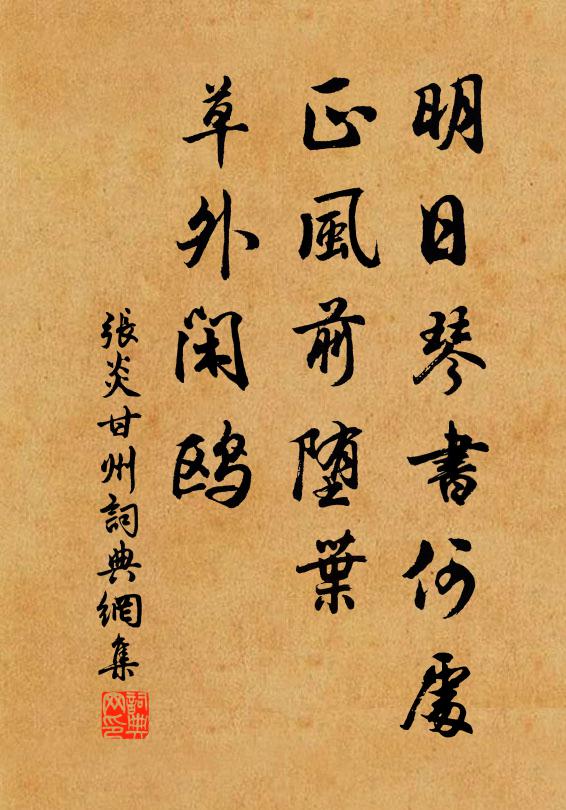 明日琴書何處
正風前墮葉
草外閑鷗
張炎甘州詞典網集
詞典网印